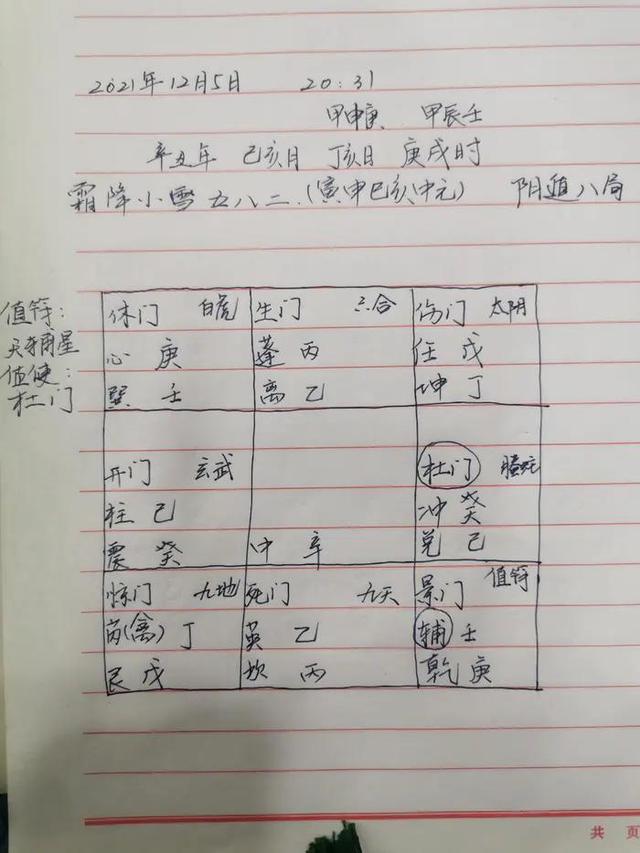 2021年12月5日 20:31
甲申庚 甲辰壬
辛丑年 己亥月 丁亥日 庚戌时
霜降小雪五八二.(寅申巳亥中元) 阴遁八局
值符:
天辅星
值使:
杜门
休门 白虎
心 庚
巽 壬
生门 六合
蓬 丙
离 乙
伤门 太阴
任 戊
坤 丁
开门 玄武
柱 己
震 癸
中 辛
杜门 螣蛇
冲 癸
兑 己
惊门 九地
芮(禽) 丁
艮 戊
死门 九天
英 乙
坎 丙
景门 值符
辅 壬
乾 庚
共 页